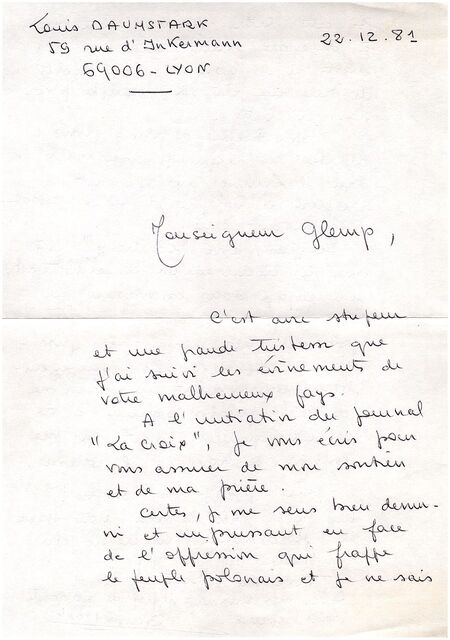 Louis DAUMSTARK
59 rue d'Inkermann
69006 - LYON
22.12.81
Monseigneur Glemp,
C'est avec stupeur
et une grande tristesse que
j'ai suivi les évènements de
votre malheureux pays.
A l'initiation du journal
"La Croix", je vous écris pour
vous assurer de mon soutien
et de ma prière.
Certes, je me sens bien dému-
ni et impuissant en face
de l'oppression qui frappe
le peuple polonais et je ne sais